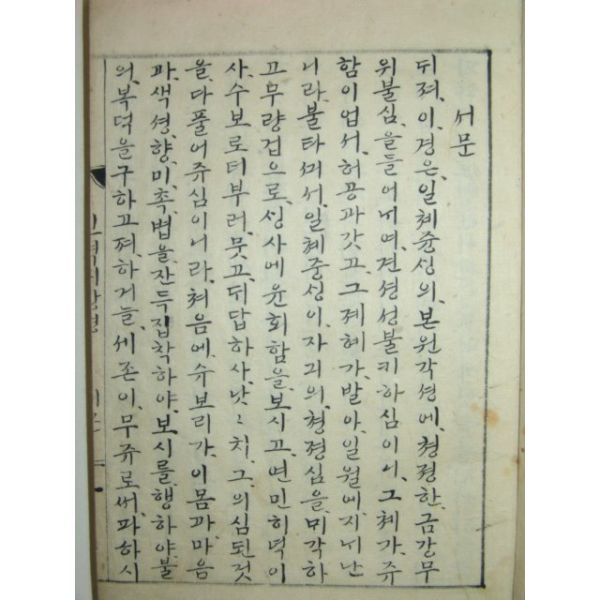 서문
뒤져, 이, 경은, 일쳬즁성의, 본원각셩에, 쳥졍한, 금강무
위불심, 을들어내여, 견셩성불키하심이니, 그쳬가, 쥬
함이업서, 허공과갓고, 그졔혜가, 발아, 일월에지내난
니라, 불타꺼서, 일쳬중성이, 자긔의, 쳥졍심을, 미각하
고무량겁으로, 성사에윤회함을, 보시고, 연민히녁이
사, 수보로더부러, 뭇고, 대답하사, 낫〻치, 그, 의심된것
을, 다풀어쥬심이니라, 쳐음에, 슈보리가, 이몸과마음
과, 색셩, 향, 미, 촉, 법을, 잔득집착하야, 보시를, 행하야, 불
의, 복덕을구하고져, 하거늘, 세존이, 무쥬로써, 파하시